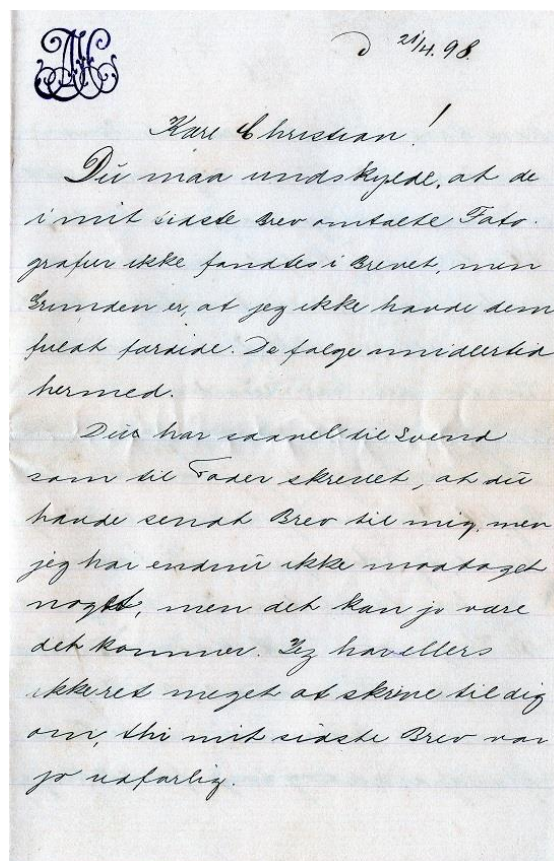 D 21/4. 98.
Kære Christian!
Du maa undskylde, at de
i mit sidste Brev omtalte Foto-
grafier ikke fandtes i Brevet, men
Grunden er, at jeg ikke havde dem
fuldt færdige. De følge imidlertid
hermed.
Du har saavel til Svend
som til Fader skrevet, at du
havde sendt Brev til mig, men
jeg har endnu ikke modtaget
noget, men det kan jo være
det kommer. Jeg har ellers
ikke ret meget at skrive til dig
om, thi mit sidste Brev var
jo udførlig.